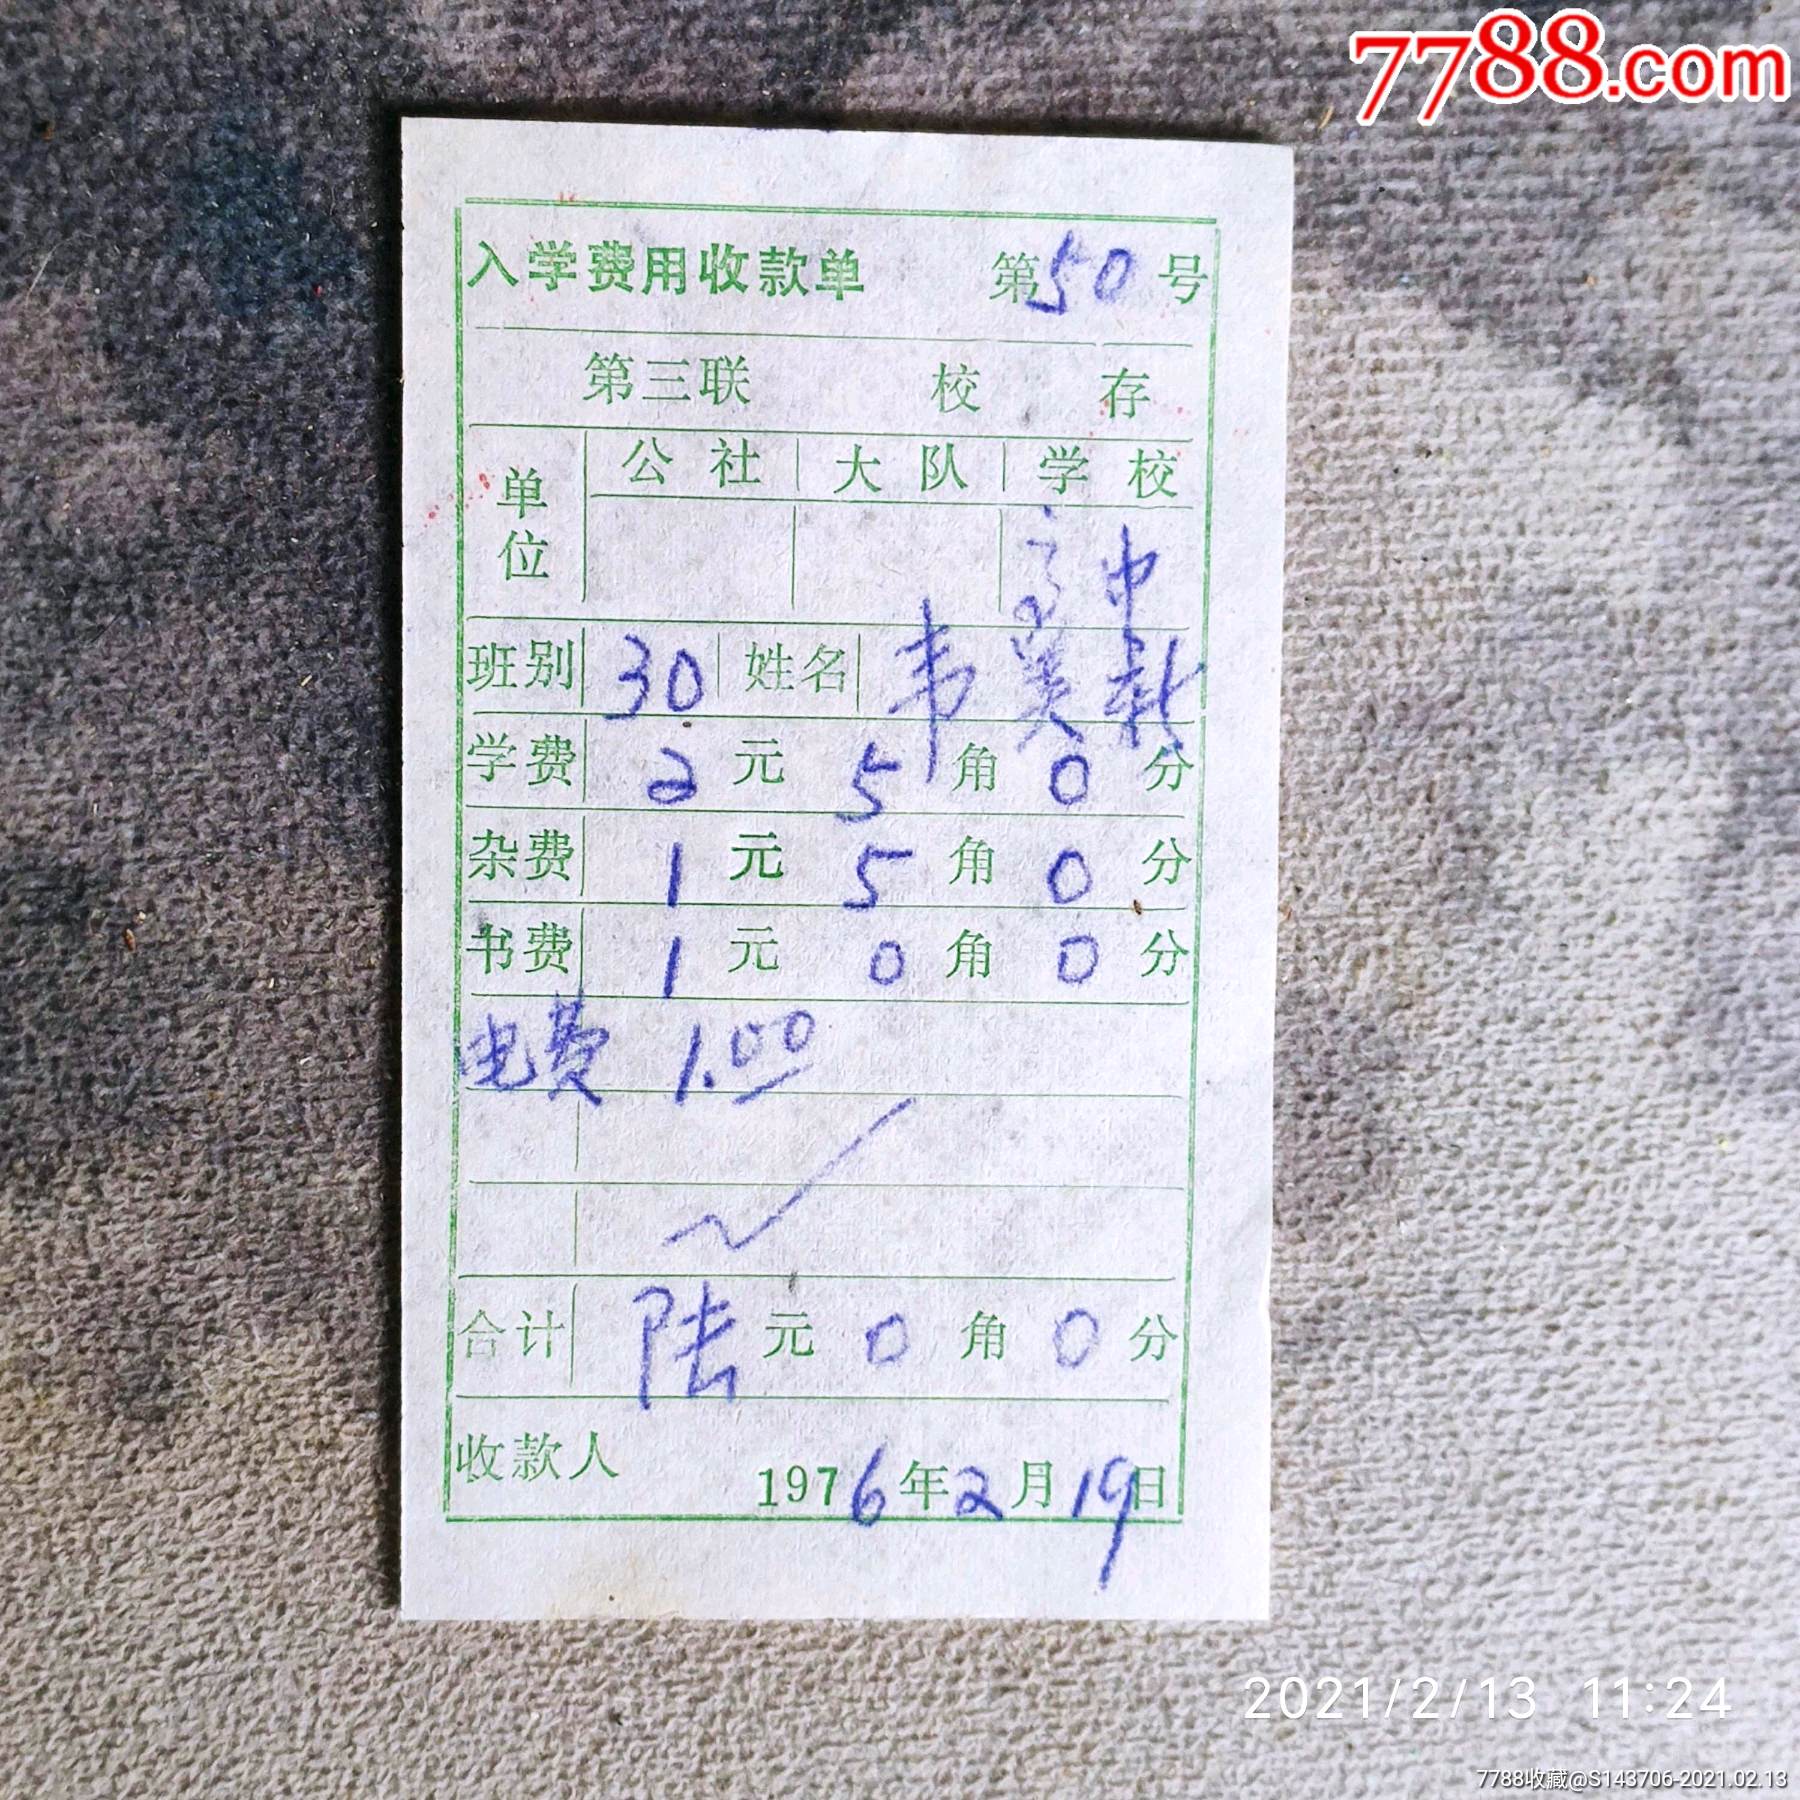 7788.com
入学费用收款单 第50号
第三联 校存
单位 公社 大队 学校
中
班别 30 姓名 韦英新
学费 2元5角0分
杂费 1元5角0分
书费 1元0角0分
电费 1.00
合计 陆元0角0分
收款人 1976年2月19日
2021/2/13 11:24
7788收藏@S143706-2021.02.13